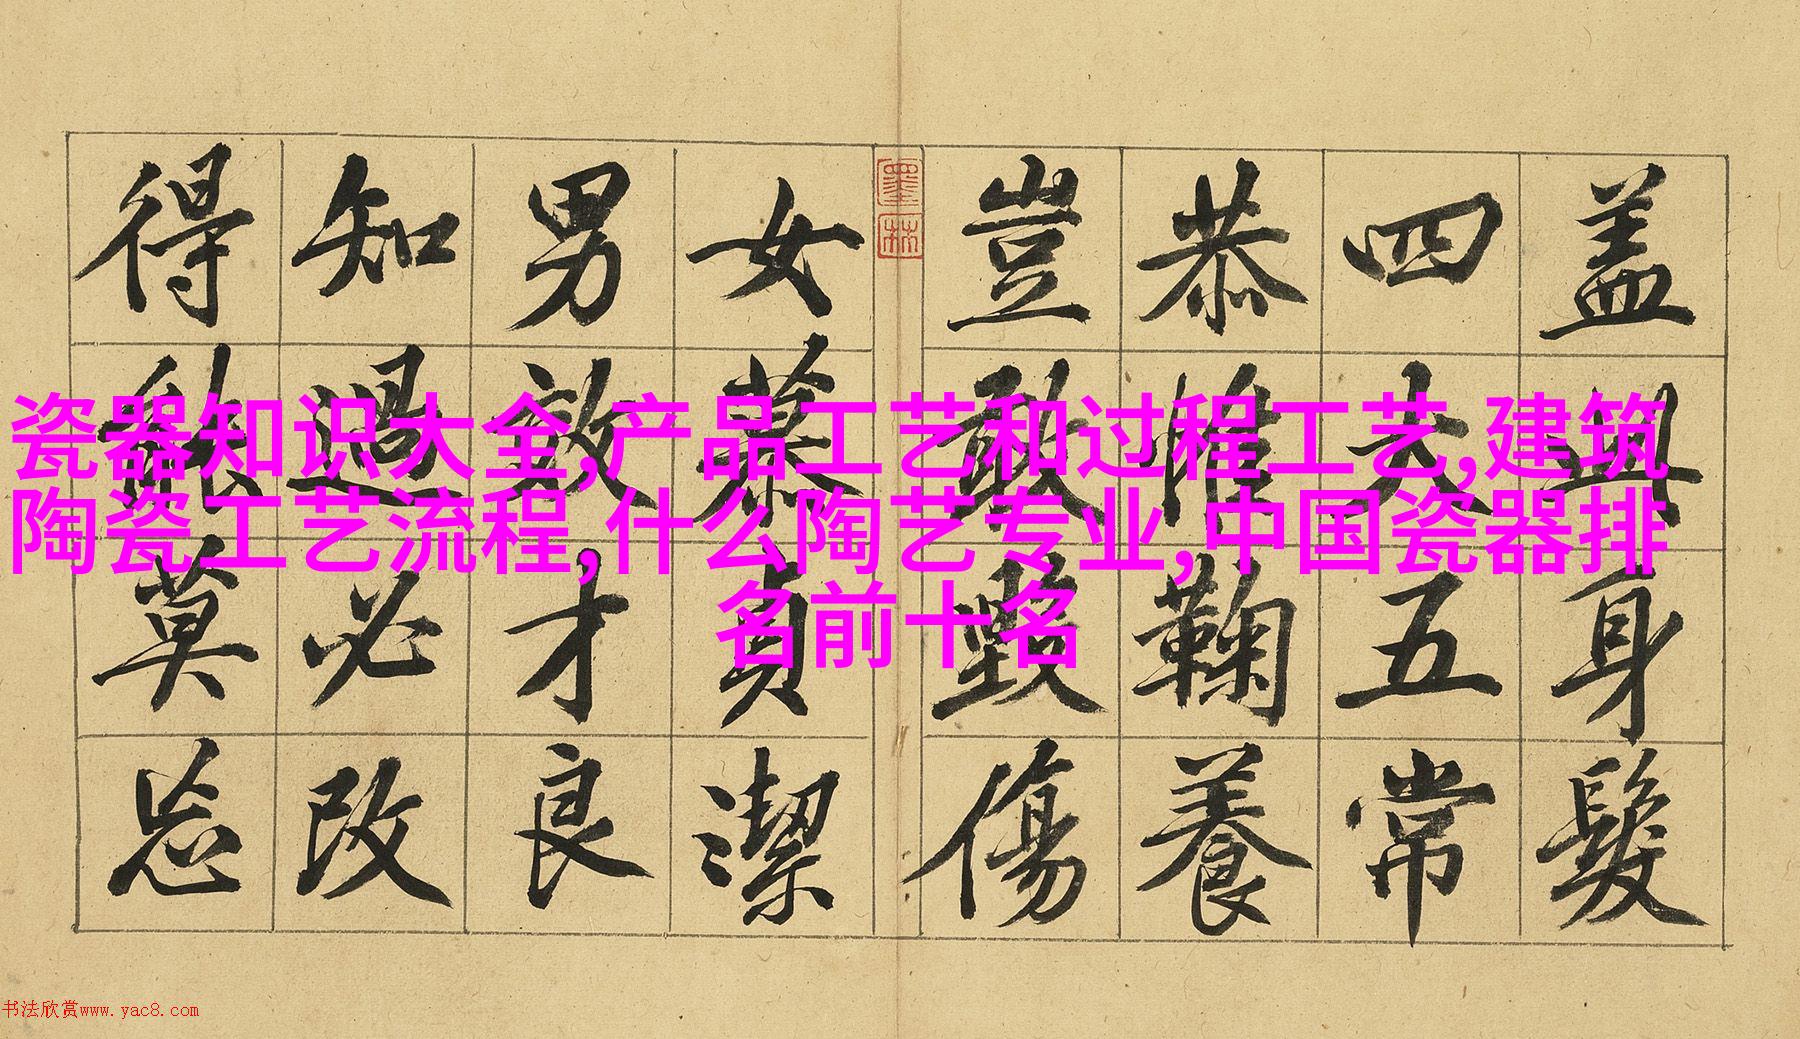 盖此身髮
四大五常
恭惟鞠養
豈敢毀傷
墨林
女慕貞潔
男效才良
知過必改
得能莫忘
瓷器知识大全,产品工艺和过程工艺,建筑
陶瓷工艺流程,什么陶艺专业,中国瓷器排
名前十名
书法欣赏www.yac8.com